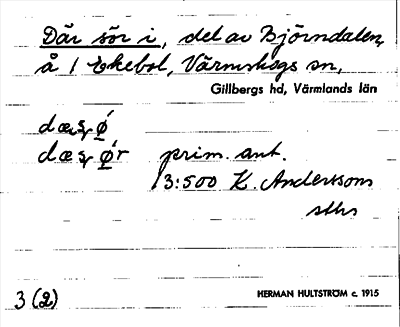 Där sör i, del av Björndalen,
å 1 Ekebol, Värmskogs sn,
Gillbergs hd, Värmlands län
dæ, s, ǿ
dæ s, ǿr prim. ant.
/3:500 K. Anderssons
sths
3 (2)
HERMAN HULTSTRÖM c. 1915